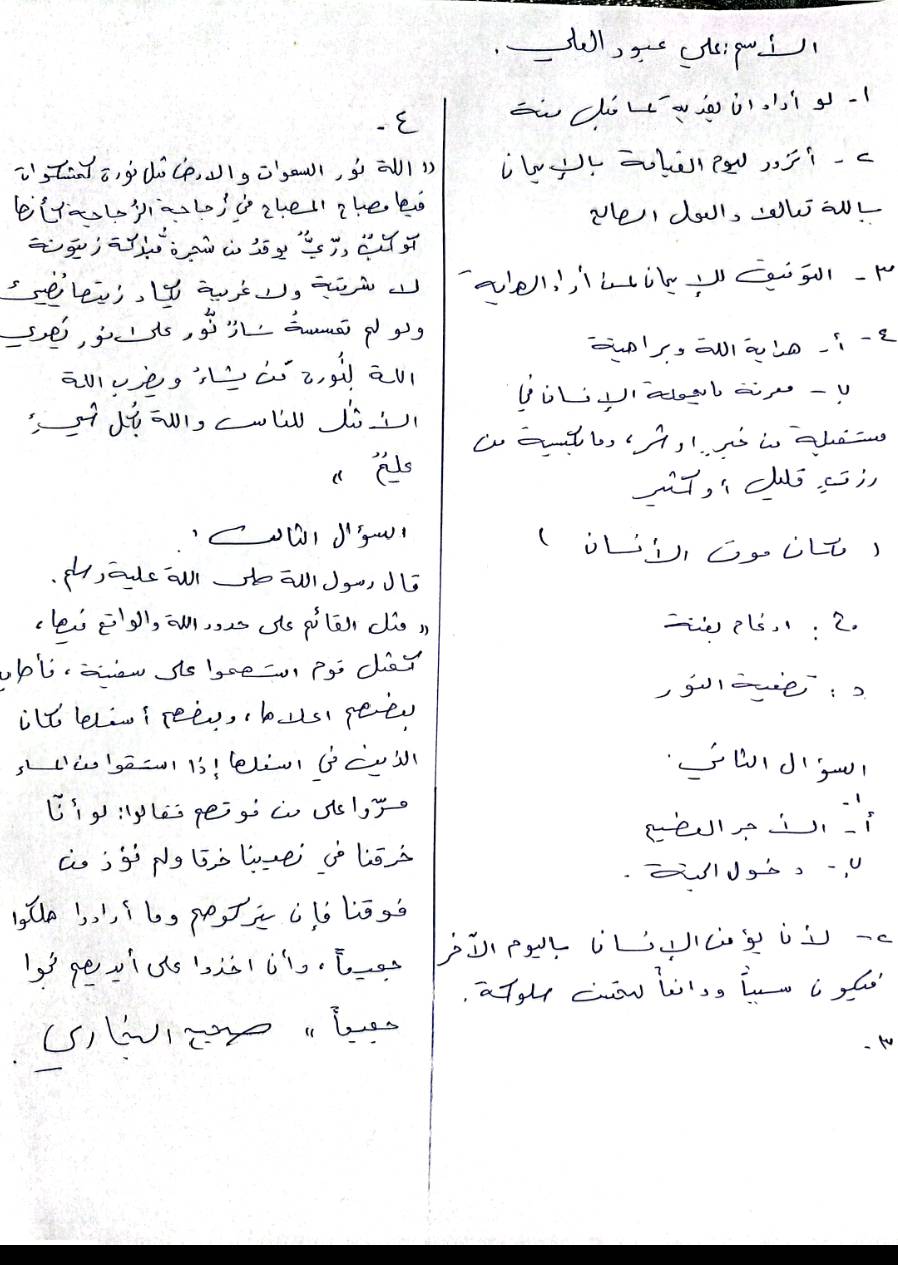 الأسم: علي عبود العلي.
١- لو أراد ان يفديه لما قبل منه
٢- أتزود ليوم القيامة بالإيمان
بالله تعالى والعمل الصالح
٣- التوفيق للإيمان لمن أراد الهداية
٤- أ- هداية الله وبراهينه
ب- معرفة ما يعمله الإنسان في
مستقبله من خير او شر، وما يكسبه من
رزق قليل أو كثير
( مكان موت الأنسان )
ج: ادغام بغنة
د: تضعية النور
السؤال الثاني:
١-
أ- الأجر العظيم
ب- دخول الجنة.
٢- لأن يؤمن الإنسان باليوم الآخر
فيكون سبباً ودافعاً لتحسن سلوكه.
٣-
٤-
(( الله نور السموات والارض مثل نوره كمشكواة
فيها مصباح المصباح في زُجاجة الزُجاجة كأنها
كوكبٌ درّيٌّ يوقدُ من شجرة مُباركة زيتونة
لا شرقية ولا غربية يكاد زيتها يُضيئ
ولو لم تمسسهُ نارٌ نُّور على نور يَهدي
الله لِنُوره مَن يشاءُ ويضرب الله
الأمثل للناس والله بكُل شيءٍ
عليمٌ ))
السؤال الثالث:
قال رسول الله صلى الله عليه وسلم.
(( مثل القائم على حدود الله والواقع فيها،
كمثل قوم استهموا على سفينة، فأصاب
بعضهم اعلاها، وبعضهم أسفلها فكان
الذين في اسفلها إذا استقوا من الماء
مرّوا على من فوقهم فقالوا: لو أنّا
خرقنا في نصيبنا خرقا ولم نؤذ من
فوقنا فإن يتركوهم وما أرادوا هلكوا
جميعاً، وأن اخذوا على أيديهم نجوا
جميعاً )) صحيح البخاري.